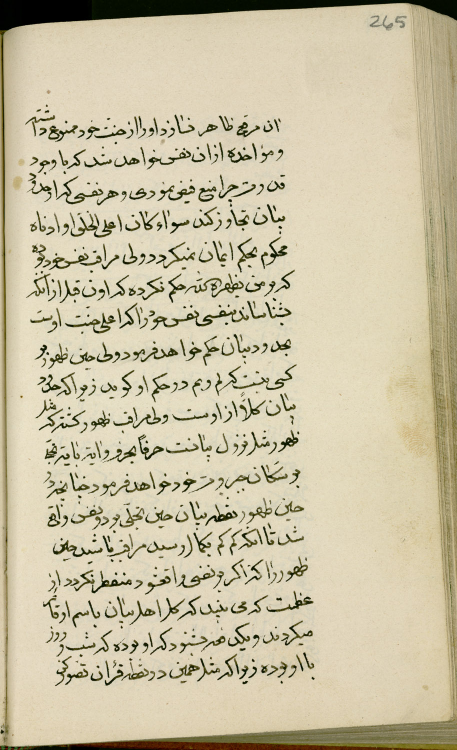 265
ان مرتفع ظاهر نسازد او را از جنت خود ممنوع داشته
و مؤاخذه از ان نفس خواهد شد که با وجود
قدرت چرا منع فیض نمودی و هر نفسی که از حدود
بیان تجاوز کند سواء کان اعلی الخلق او ادناه
محکوم بحکم ایمان نمیگردد ولی مراقب نفس خود بوده
که و من یظهره الله حکم نکرده که اون قبل از انکه
بشناساند بنفسی نفس خود را که اعلی جنت اوست
بحدود بیان حکم خواهد فرمود ولی حین ظهور
کسی نیست که لم و بم در حکم او گوید زیرا که حدود
بیان کلاً از اوست ولی مراقب ظهور گشته که مثل
ظهور مثل نزول بیانت حرفاً بحرف و ایة بایة
بر سکان جبروت خود خواهد فرمود چنانچه در
حین ظهور نقطه بیان حین تجلی بر دو نفس واقع
شد تا انکه کم کم بکمال رسید مراقب باشید حین
ظهور را که اگر بر نفسی واقع شود منفطر نگردد از
عظمت که می بیند که کل اهل بیان باسم او قیام
میکردند و یکدفعه شنود که او بوده که شب و روز
با او بوده زیرا که مثل همین در نقطه قرآن تصور کن